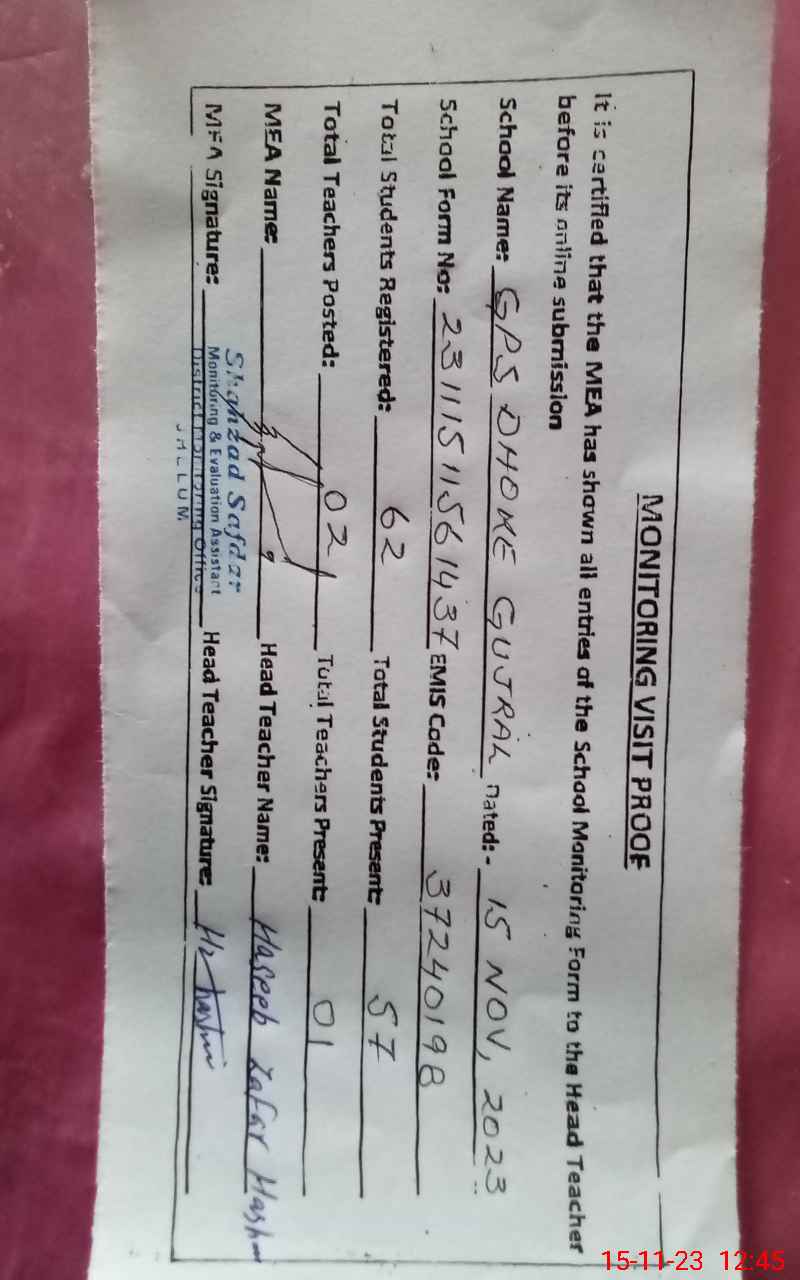 MONITORING VISIT PROOF
It is certified that the MEA has shown all entries of the School Monitoring Form to the Head Teacher
before its online submission
School Name: GPS DHOKE GUJRAL Dated:- 15 NOV, 2023
School Form No: 23111511561437 EMIS Code: 37240198
Total Students Registered: 62 Total Students Present: 57
Total Teachers Posted: 02 Total Teachers Present: 01
MEA Name: Head Teacher Name: Haseeb Zafar Hashm
Shahzad Safdar
Monitoring & Evaluation Assistant
District Monitoring Office
JHELUM
MEA Signature: Head Teacher Signature:
15-11-23 12:45